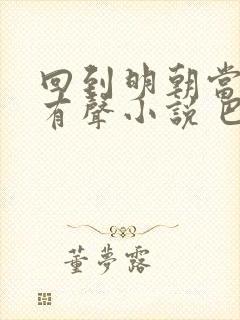 回到明朝当
有聲小說 巴
董夢露